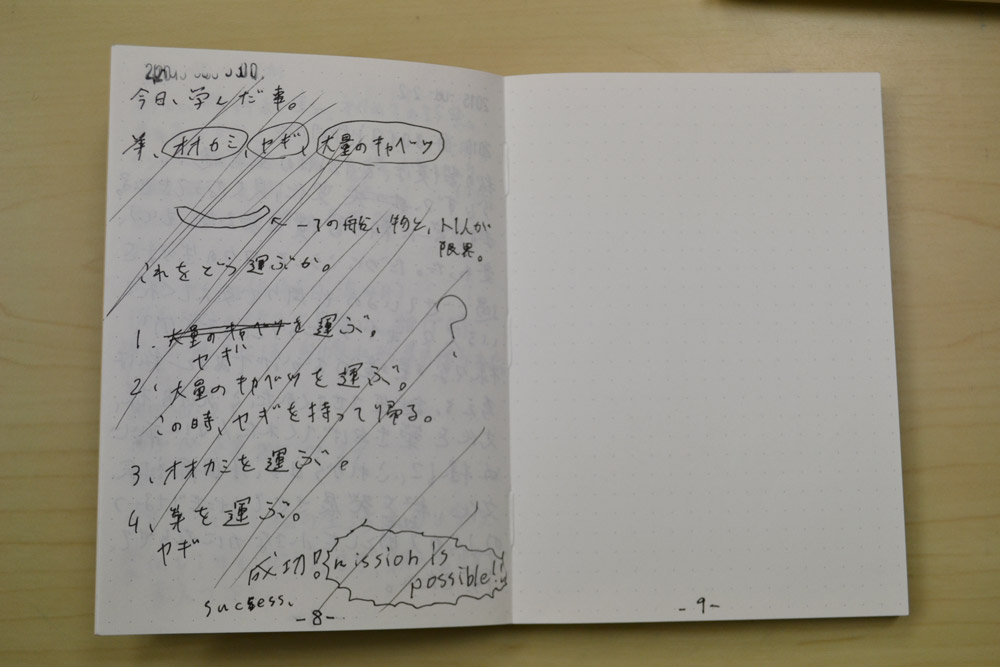 今日、学んだ事。
羊、オオカミ、ヤギ、大量のキャベツ
←一つの船、物と、人1人が
限界。
これをどう運ぶか。
?
1. 大量のキャベツを運ぶ。
ヤギ
2、大量のキャベツを運ぶ。
この時、ヤギを持って帰る。
3、オオカミを運ぶ。
4、羊を運ぶ。
ヤギ
成功!! mission is
possible!!
success.
-8-
-9-